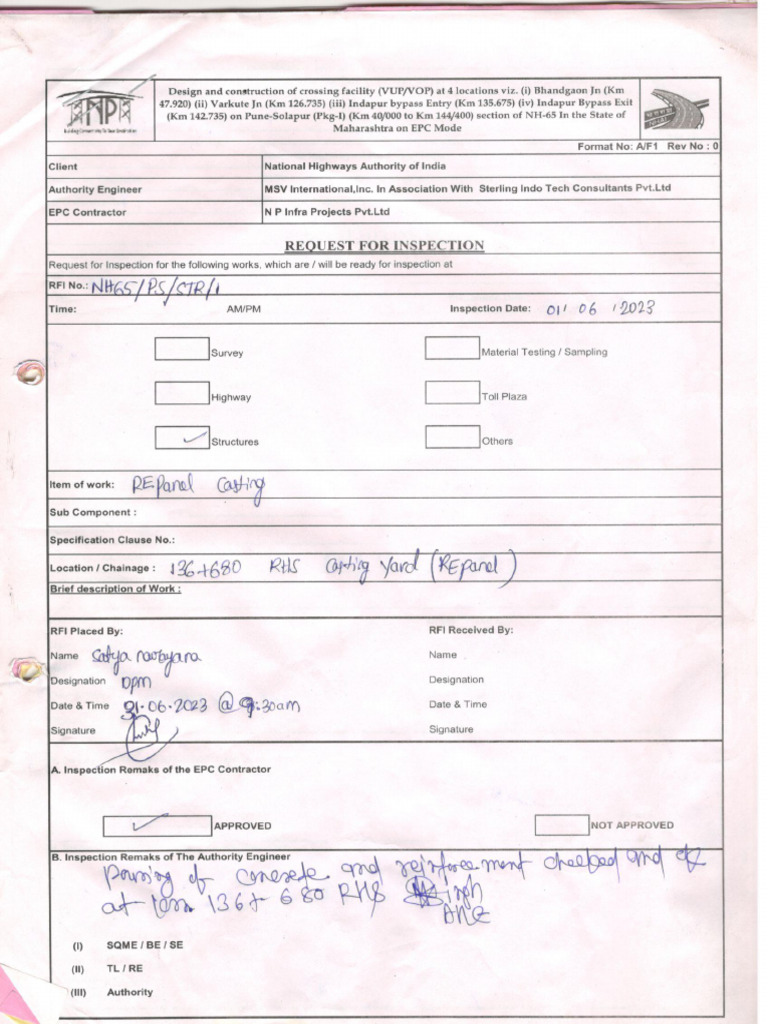 Design and construction of crossing facility (VUP/VOP) at 4 locations viz. (i) Bhandgaon Jn (Km
47.920) (ii) Varkute Jn (Km 126.735) (iii) Indapur bypass Entry (Km 135.675) (iv) Indapur Bypass Exit
(Km 142.735) on Pune-Solapur (Pkg-I) (Km 40/000 to Km 144/400) section of NH-65 In the State of
Maharashtra on EPC Mode
NPI
Format No: A/F1 Rev No : 0
Client National Highways Authority of India
Authority Engineer MSV International,Inc. In Association With Sterling Indo Tech Consultants Pvt.Ltd
EPC Contractor N P Infra Projects Pvt.Ltd
REQUEST FOR INSPECTION
Request for Inspection for the following works, which are / will be ready for inspection at
RFI No.: NH65/PS/STR/1
Time: AM/PM Inspection Date: 01/ 06 /2023
Survey Material Testing / Sampling
Highway Toll Plaza
Structures Others
Item of work: REPanel Casting
Sub Component :
Specification Clause No.:
Location / Chainage : 136+680 RHS Casting Yard (REPanel)
Brief description of Work :
RFI Placed By: RFI Received By:
Name Satya narayana Name
Designation DPM Designation
Date & Time 31.06.2023 @ 9:30am Date & Time
Signature Signature
A. Inspection Remaks of the EPC Contractor
APPROVED NOT APPROVED
B. Inspection Remaks of The Authority Engineer
pouring of concrete and reinforcement checked and ok
at km 136+680 RHS
(I) SQME / BE / SE
(II) TL / RE
(III) Authority